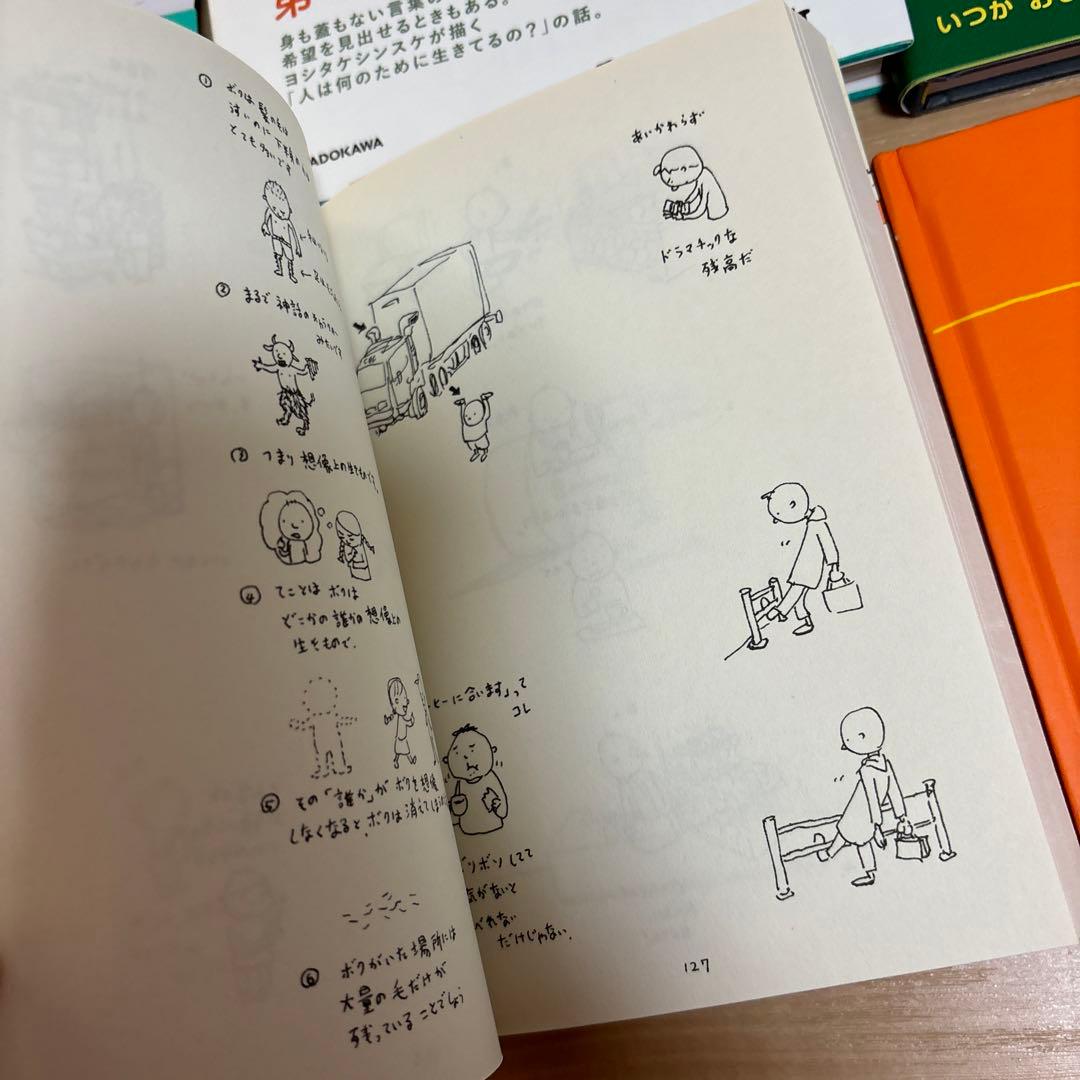 身も蓋もない言葉の
希望を見出せるときもある。
ヨシタケシンスケが描く
「人は何のために生きてるの?」の話。
ADOKAWA
いつか おじ
① ボクは 髪の毛は
うすいのに 下半身の
とても多いです
② まるで 神話の
みたいです
③ つまり 想像上の生きもので、
④ てことは ボクは
どこかの 誰かの 想像上の
生きもので、
⑤ その「誰か」が ボクを想像
しなくなると、ボクは 消えてしまう
⑥ ボクがいた場所には
大量の毛だけが
残っていることでしょう
あいかわらず
ドラマチックな
残高だ
ヒーに合います」って
コレ
ボソボソしてて
気がないと
べれない
だけじゃない.
127